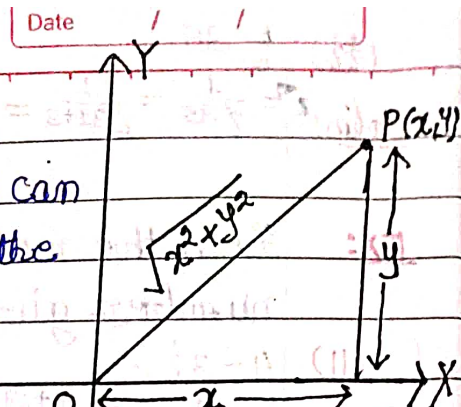 Date / /
Y
P(x,y)
can
the
√x²+y²
y
O x X